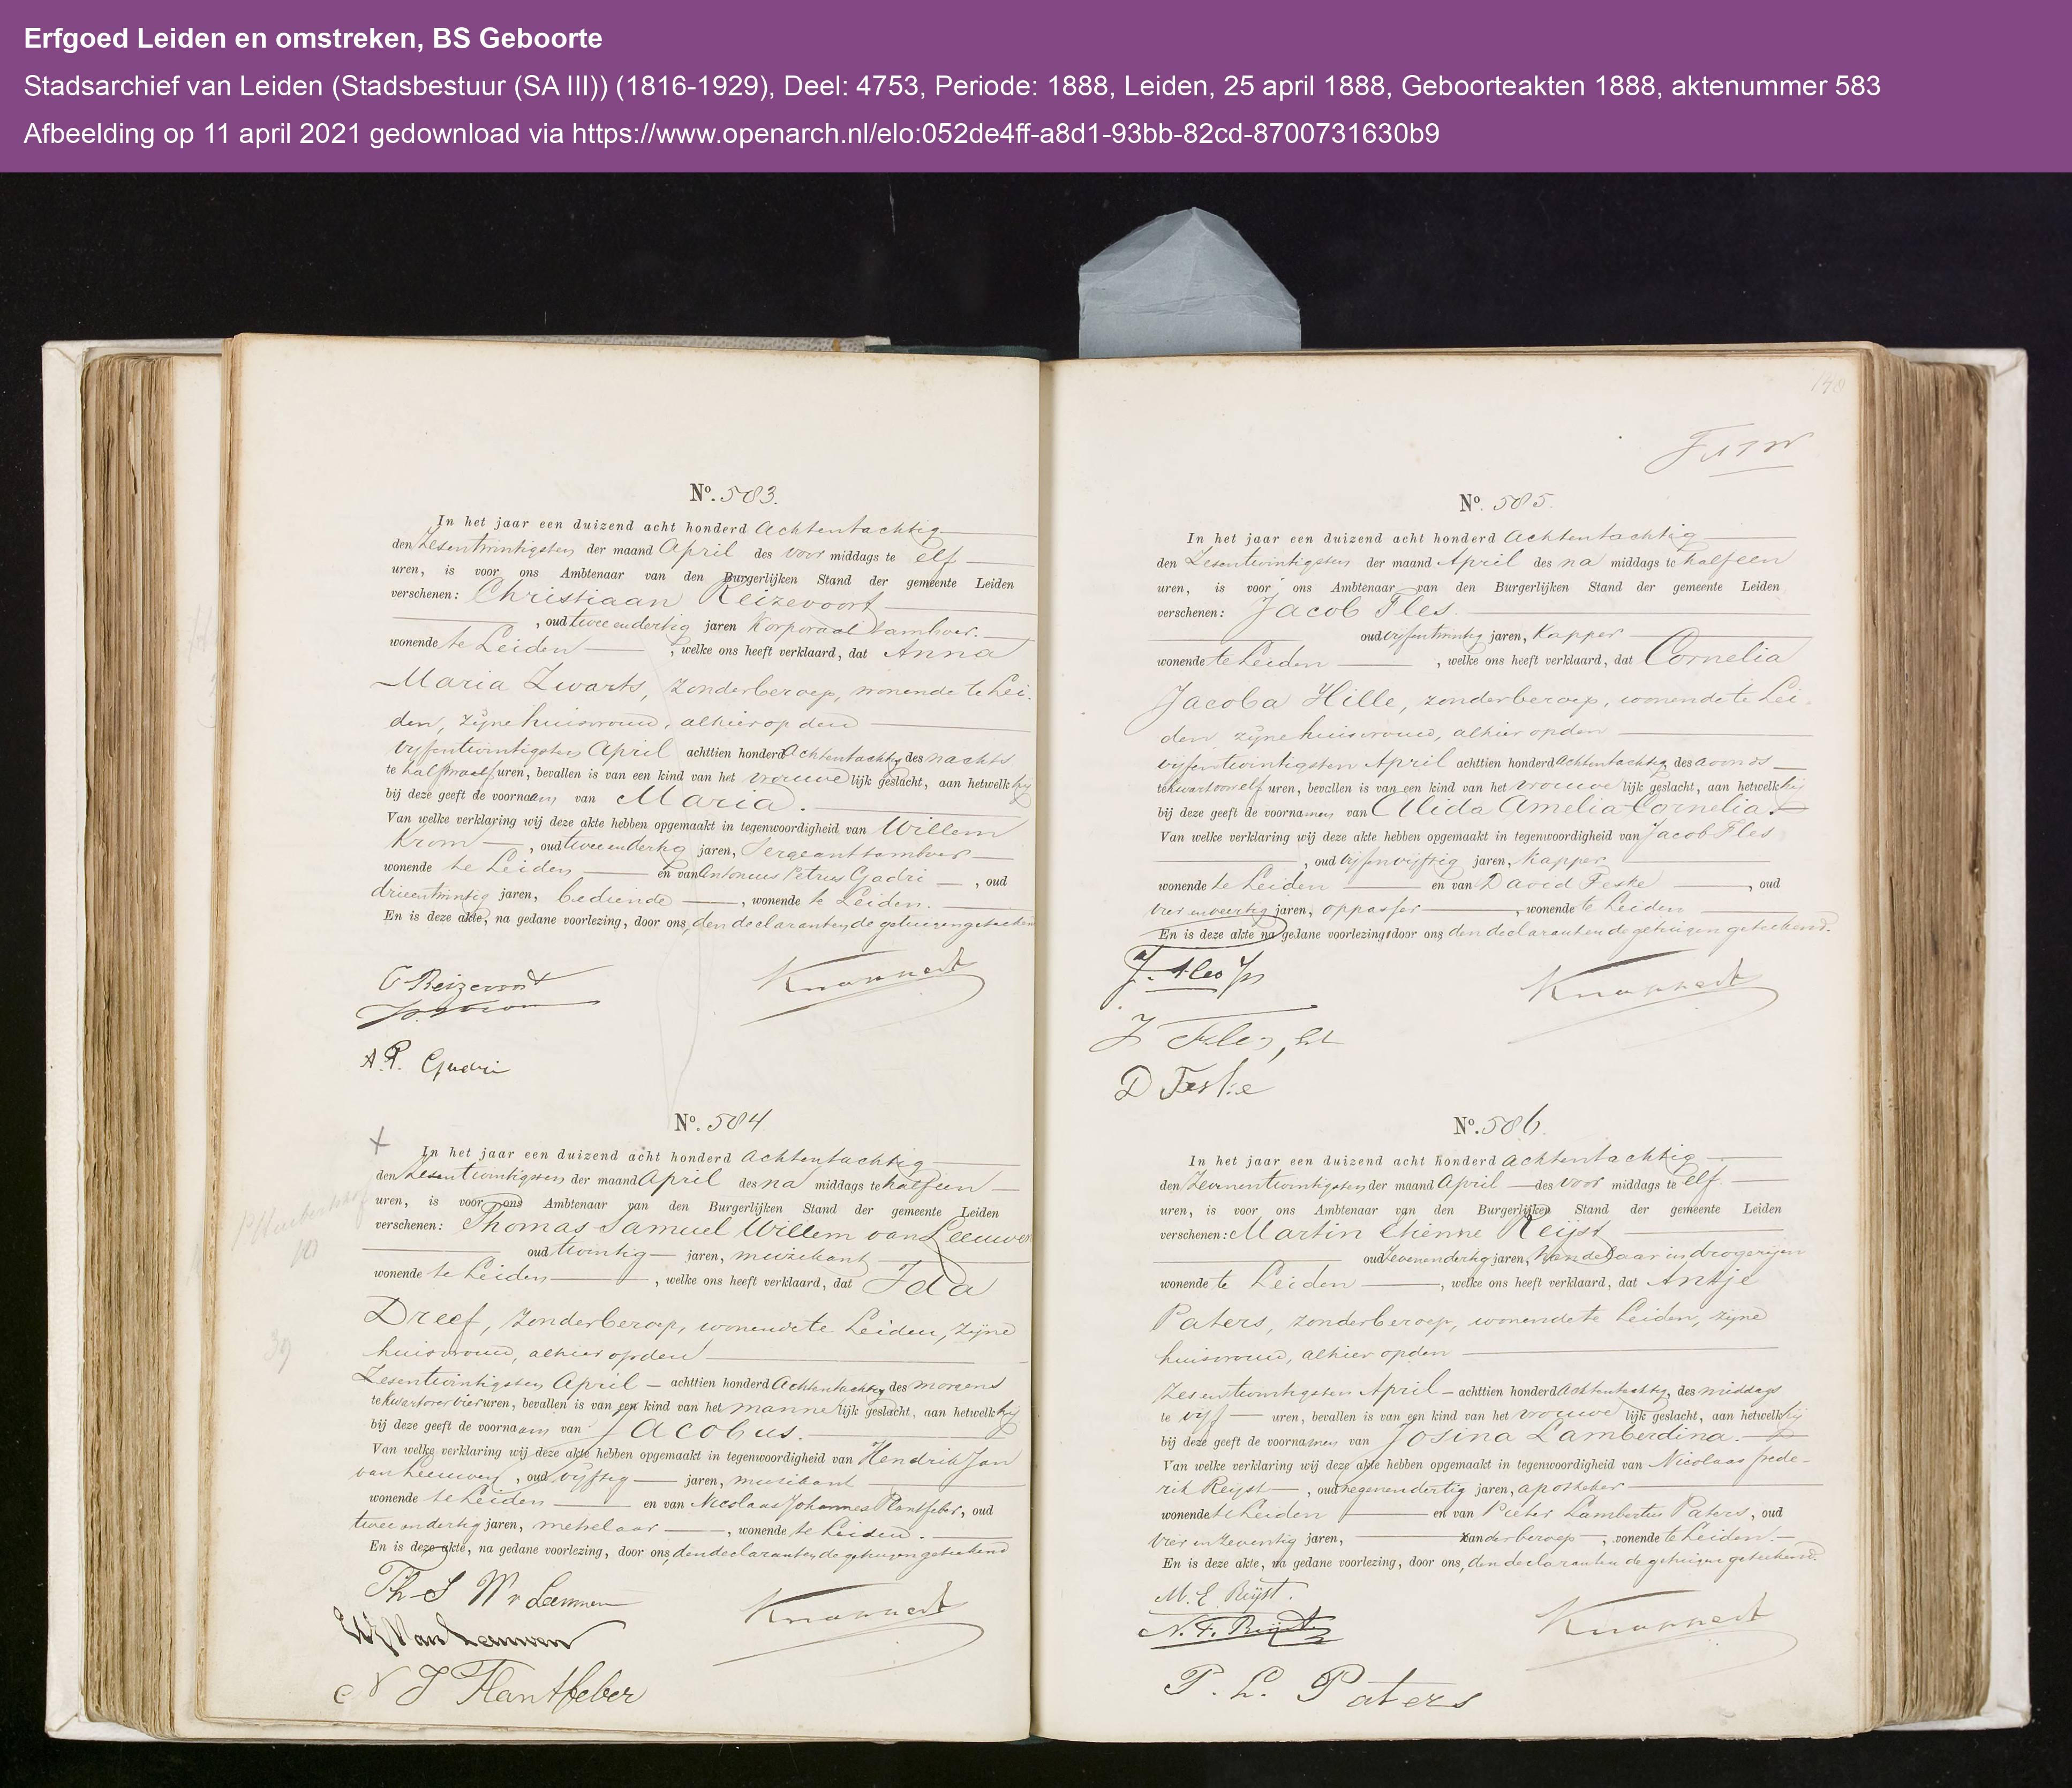 Erfgoed Leiden en omstreken, BS Geboorte
Stadsarchief van Leiden (Stadsbestuur (SA III)) (1816-1929), Deel: 4753, Periode: 1888, Leiden, 25 april 1888, Geboorteakten 1888, aktenummer 583
Afbeelding op 11 april 2021 gedownload via https://www.openarch.nl/elo:052de4ff-a8d1-93bb-82cd-8700731630b9
No. 583.
In het jaar een duizend acht honderd Achtentachtig
den Zesentwintigsten der maand April des voor middags te elf
uren, is voor ons Ambtenaar van den Burgerlijken Stand der gemeente Leiden
verschenen: Christiaan Reizevoort
, oud twee en dertig jaren Korporaal tamboer.
wonende te Leiden , welke ons heeft verklaard, dat Anna
Maria Zwarts, zonder beroep, wonende te Lei-
den, zijne huisvrouw, alhier op den
vijfentwintigsten April achttien honderd Achtentachtig des nachts
te half twaalf uren, bevallen is van een kind van het vrouwe lijk geslacht, aan hetwelk hij
bij deze geeft de voornaam van Maria.
Van welke verklaring wij deze akte hebben opgemaakt in tegenwoordigheid van Willem
Krom , oud twee en dertig jaren, Sergeant tamboer
wonende te Leiden en van Antonius Petrus Gadri , oud
drieentwintig jaren, bediende , wonende te Leiden.
En is deze akte, na gedane voorlezing, door ons, den declarant en de getuigen geteekend
C Reizevoort
Knappert
W. Krom
A. P. Gadri
No. 584
In het jaar een duizend acht honderd Achtentachtig
den Zesentwintigsten der maand April des na middags te half een
uren, is voor ons Ambtenaar van den Burgerlijken Stand der gemeente Leiden
verschenen: Thomas Samuel Willem van Leeuwen
oud twintig jaren, muzikant
wonende te Leiden , welke ons heeft verklaard, dat Ida
Dreef, zonder beroep, wonende te Leiden, zijne
huisvrouw, alhier op den
Zesentwintigsten April achttien honderd Achtentachtig des morgens
te kwart over vier uren, bevallen is van een kind van het manne lijk geslacht, aan hetwelk hij
bij deze geeft de voornaam van Jacobus.
Van welke verklaring wij deze akte hebben opgemaakt in tegenwoordigheid van Hendrik Jan
van Leeuwen , oud vijftig jaren, muzikant
wonende te Leiden en van Nicolaas Johannes Plantfeber, oud
twee en dertig jaren, metselaar , wonende te Leiden.
En is deze akte, na gedane voorlezing, door ons, den declarant en de getuigen geteekend
Th S W v Leeuwen
Knappert
HJ Van Leeuwen
N J Plantfeber
148
No. 585.
In het jaar een duizend acht honderd Achtentachtig
den Zesentwintigsten der maand April des na middags te half een
uren, is voor ons Ambtenaar van den Burgerlijken Stand der gemeente Leiden
verschenen: Jacob Fles.
oud vijfentwintig jaren, Kapper
wonende te Leiden , welke ons heeft verklaard, dat Cornelia
Jacoba Hille, zonder beroep, wonende te Lei-
den zijne huisvrouw, alhier op den
vijfentwintigsten April achttien honderd Achtentachtig des avonds
te kwart voor elf uren, bevallen is van een kind van het vrouwe lijk geslacht, aan hetwelk hij
bij deze geeft de voornamen van Alida Amelia Cornelia.
Van welke verklaring wij deze akte hebben opgemaakt in tegenwoordigheid van Jacob Fles
, oud vijfenvijftig jaren, Kapper
wonende te Leiden en van David Feske , oud
vier en veertig jaren, oppasser , wonende te Leiden
En is deze akte na gedane voorlezing door ons den declarant en de getuigen geteekend.
J. Fles Jr
Knappert
J Fles, Sr
D Feske
No. 586.
In het jaar een duizend acht honderd Achtentachtig
den Zevenentwintigsten der maand April des voor middags te elf
uren, is voor ons Ambtenaar van den Burgerlijken Stand der gemeente Leiden
verschenen: Martin Etienne Reijst
oud Zevenendertig jaren, handelaar in drogerijen
wonende te Leiden , welke ons heeft verklaard, dat Antje
Paters, zonder beroep, wonende te Leiden, zijne
huisvrouw, alhier op den
Zesentwintigsten April achttien honderd Achtentachtig, des middags
te vijf uren, bevallen is van een kind van het vrouwe lijk geslacht, aan hetwelk hij
bij deze geeft de voornamen van Josina Lamberdina.
Van welke verklaring wij deze akte hebben opgemaakt in tegenwoordigheid van Nicolaas frede-
rik Reijst , oud negenendertig jaren, apotheker
wonende te Leiden en van Pieter Lambertus Paters, oud
vier en zeventig jaren, zonder beroep , wonende te Leiden.
En is deze akte, na gedane voorlezing, door ons, den declarant en de getuigen geteekend.
M. E. Reijst.
Knappert
N. F. Reijst
P. L. Paters